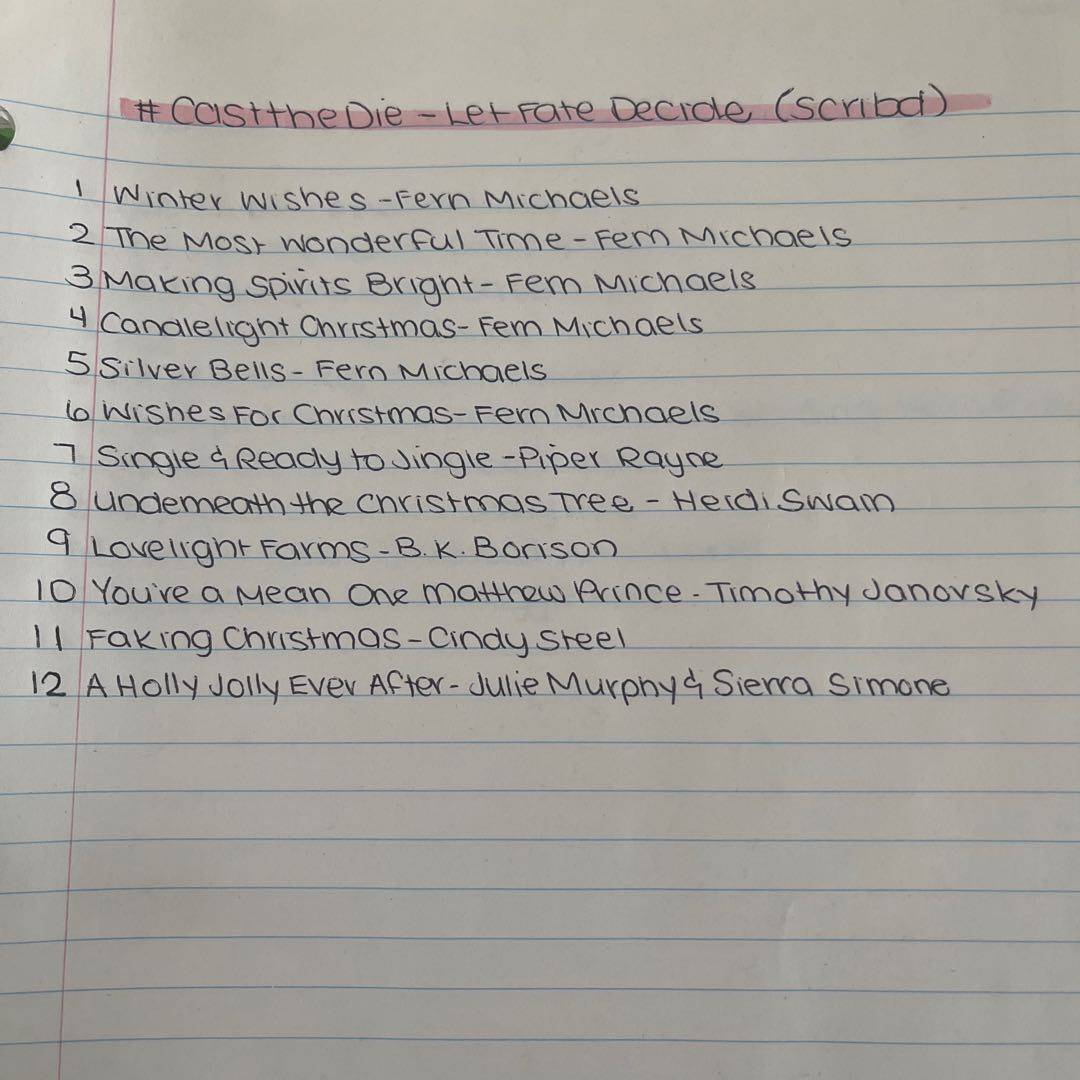 #CasttheDie - Let Fate Decide (Scribd)
1 Winter Wishes - Fern Michaels
2 The Most Wonderful Time - Fern Michaels
3 Making Spirits Bright - Fern Michaels
4 Candlelight Christmas - Fern Michaels
5 Silver Bells - Fern Michaels
6 Wishes For Christmas - Fern Michaels
7 Single & Ready to Jingle - Piper Rayne
8 Underneath the Christmas Tree - Heidi Swain
9 Lovelight Farms - B.K. Borison
10 You're a Mean One Matthew Prince - Timothy Janovsky
11 Faking Christmas - Cindy Steel
12 A Holly Jolly Ever After - Julie Murphy & Sierra Simone